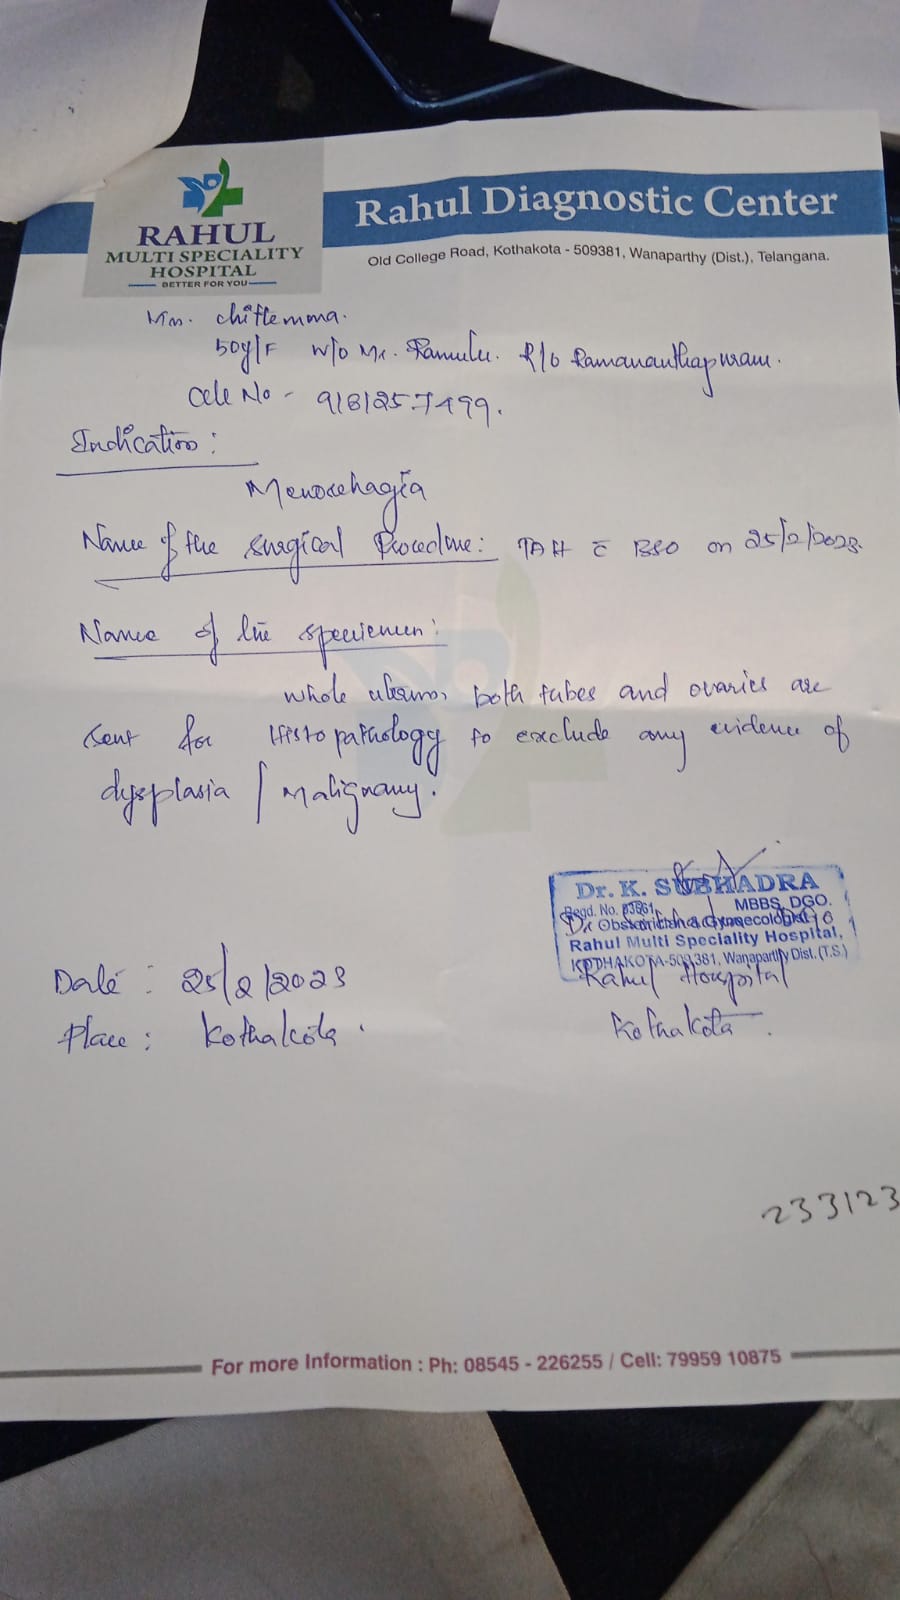 RAHUL
MULTI SPECIALITY
HOSPITAL
BETTER FOR YOU
Rahul Diagnostic Center
Old College Road, Kothakota - 509381, Wanaparthy (Dist.), Telangana.
Mrs. Chittemma.
50y/F W/o Mr. Ramulu. R/o Ramananthapuram.
Cell No - 9181257499.
Indication:
Menorrhagia
Name of the Surgical Procedure: TAH c̄ BSO on 25/2/2023.
Name of the specimen:
whole uterus, both tubes and ovaries are
sent for Histopathology to exclude any evidence of
dysplasia / Malignany.
Dr. K. SUBHADRA
MBBS, DGO.
Regd. No. 83861
Obstetrician & Gynaecologist
Rahul Multi Speciality Hospital,
KOTHAKOTA-509 381, Wanaparthy Dist. (T.S.)
Rahul Hospital
Kothakota.
Date: 25/2/2023
Place: Kothakota.
233123
For more Information : Ph: 08545 - 226255 / Cell: 79959 10875